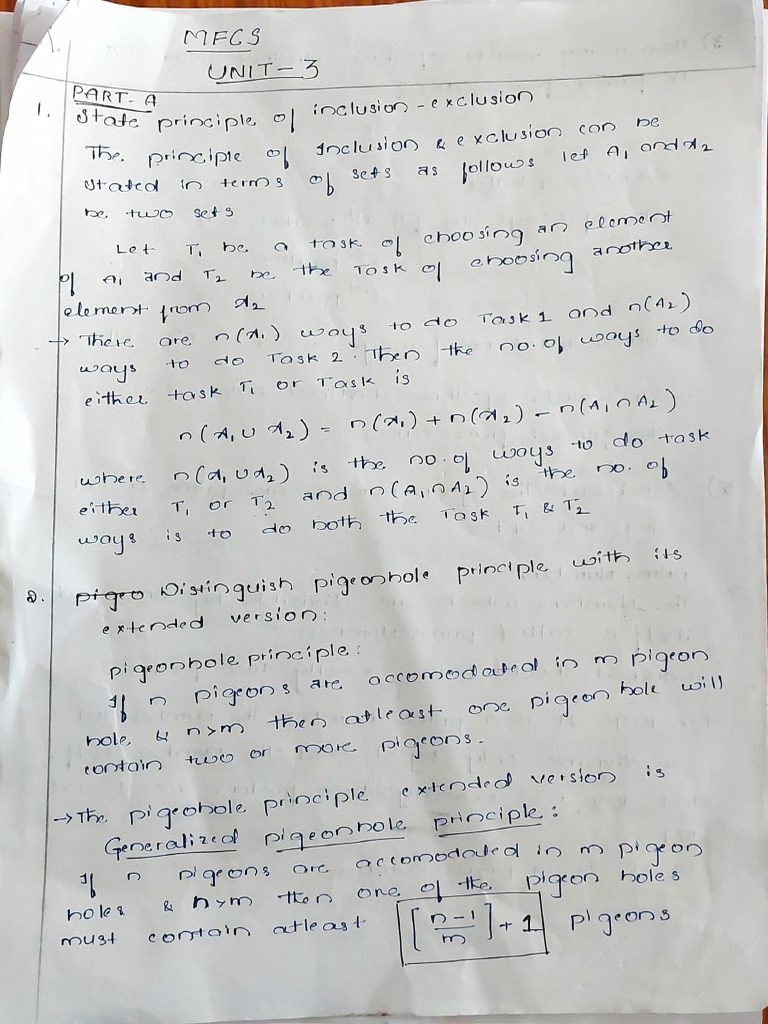 MFCS
UNIT-3
PART-A
1. State principle of inclusion-exclusion
The principle of Inclusion & exclusion can be
stated in terms of sets as follows let A₁ and A₂
be two sets
Let T₁ be a task of choosing an element
of A₁ and T₂ be the Task of choosing another
element from A₂
→ There are n(A₁) ways to do Task 1 and n(A₂)
ways to do Task 2. Then the no. of ways to do
either task T₁ or Task is
n(A₁ ∪ A₂) = n(A₁) + n(A₂) - n(A₁ ∩ A₂)
where n(A₁ ∪ A₂) is the no. of ways to do task
either T₁ or T₂ and n(A₁ ∩ A₂) is the no. of
ways is to do both the Task T₁ & T₂
2. pigeo Distinguish pigeonhole principle with its
extended version:
pigeonhole principle:
If n pigeons are accomodated in m pigeon
hole & n>m then atleast one pigeon hole will
contain two or more pigeons.
→ The pigeohole principle extended version is
Generalized pigeonhole principle:
If n pigeons are accomodated in m pigeon
holes & n>m then one of the pigeon holes
must contain atleast [n-1/m] + 1 pigeons